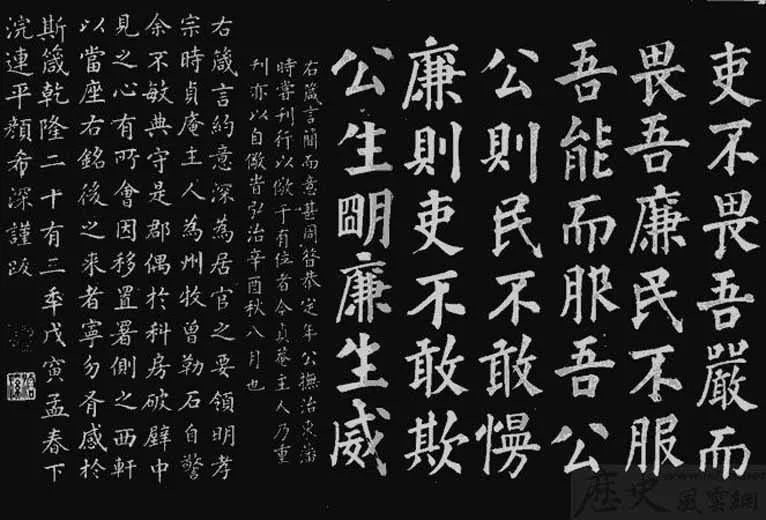 吏不畏吾嚴而
畏吾廉民不服
吾能而服吾公
公則民不敢慢
廉則吏不敢欺
公生朙廉生威
右箴言簡而意甚周昔恭定年公撫治東藩
時嘗刊行以儆于有位者今貞菴主人乃重
刊亦以自儆旹弘治辛酉秋八月也
右箴言約意深為居官之要領明孝
宗時貞庵主人為州牧曾勒石自警
余不敏典守是郡偶於科房破壁中
見之心有所會因移置署側之西軒
以當座右銘後之來者寧勿有感於
斯箴乾隆二十有三年戊寅孟春下
浣連平顏希深謹跋
歷史風雲網